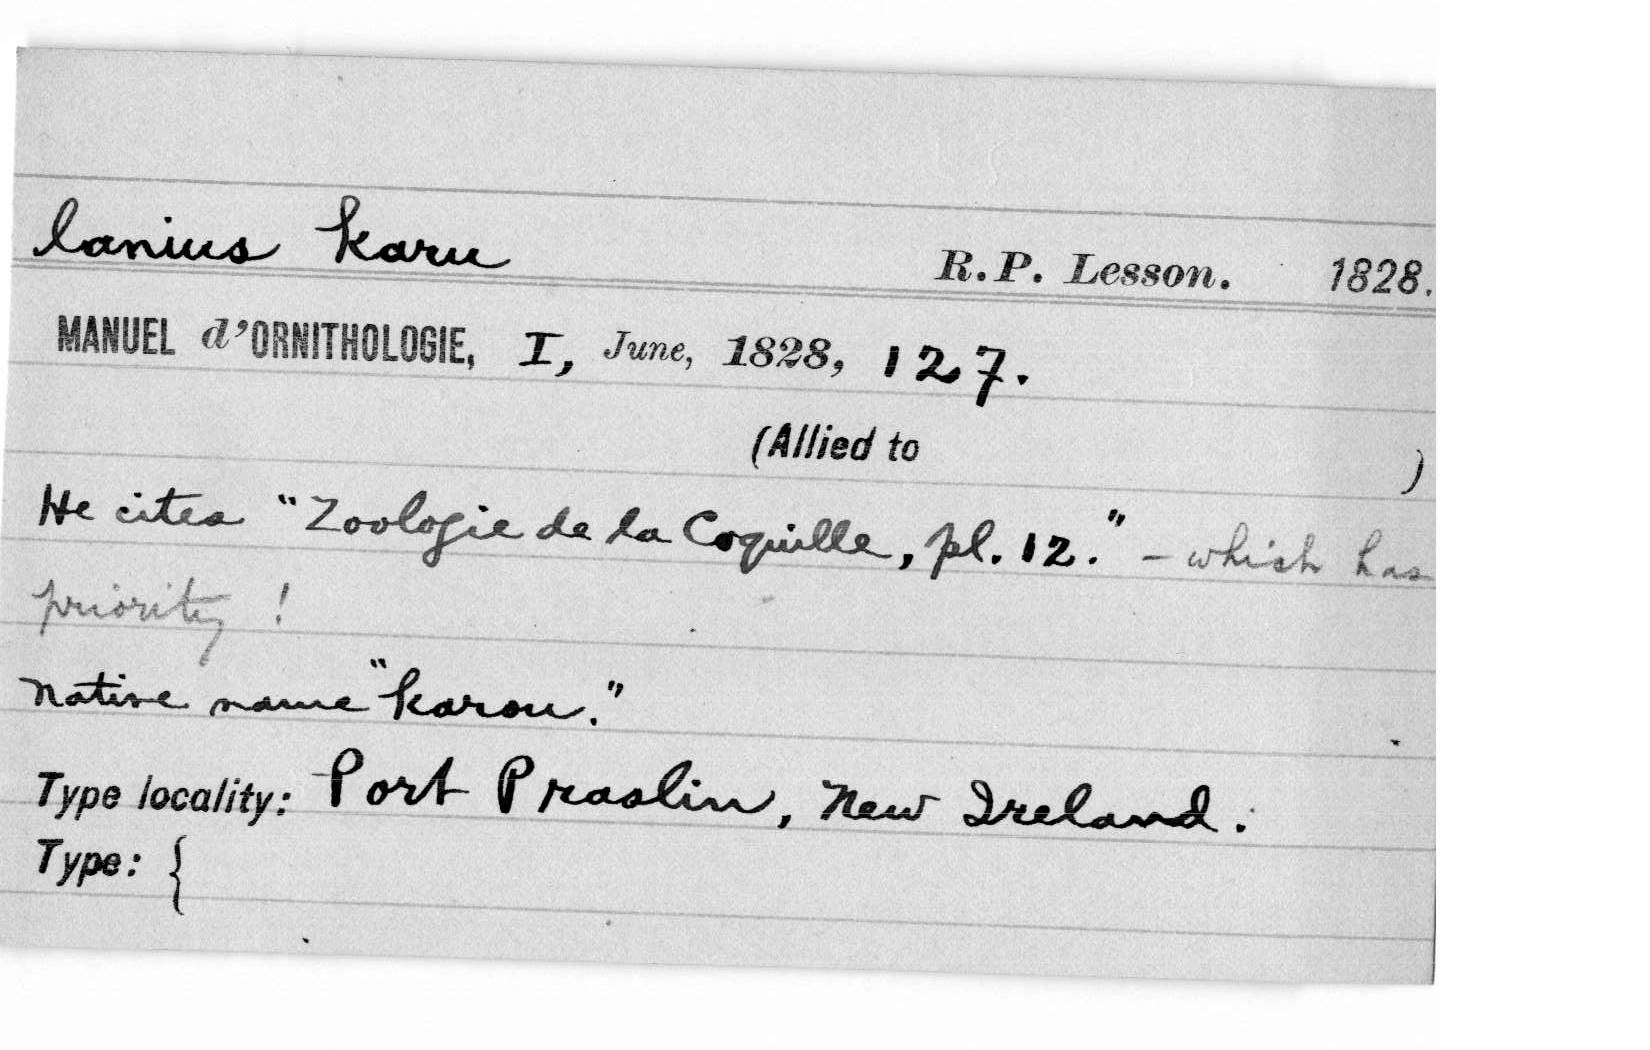 Lanius karu R.P. Lesson. 1828.
MANUEL d'ORNITHOLOGIE, I, June, 1828, 127.
(Allied to )
He cites "Zoologie de la Coquille, pl. 12." – which has
priority!
Native name "karou."
Type locality: Port Praslin, New Ireland.
Type: {